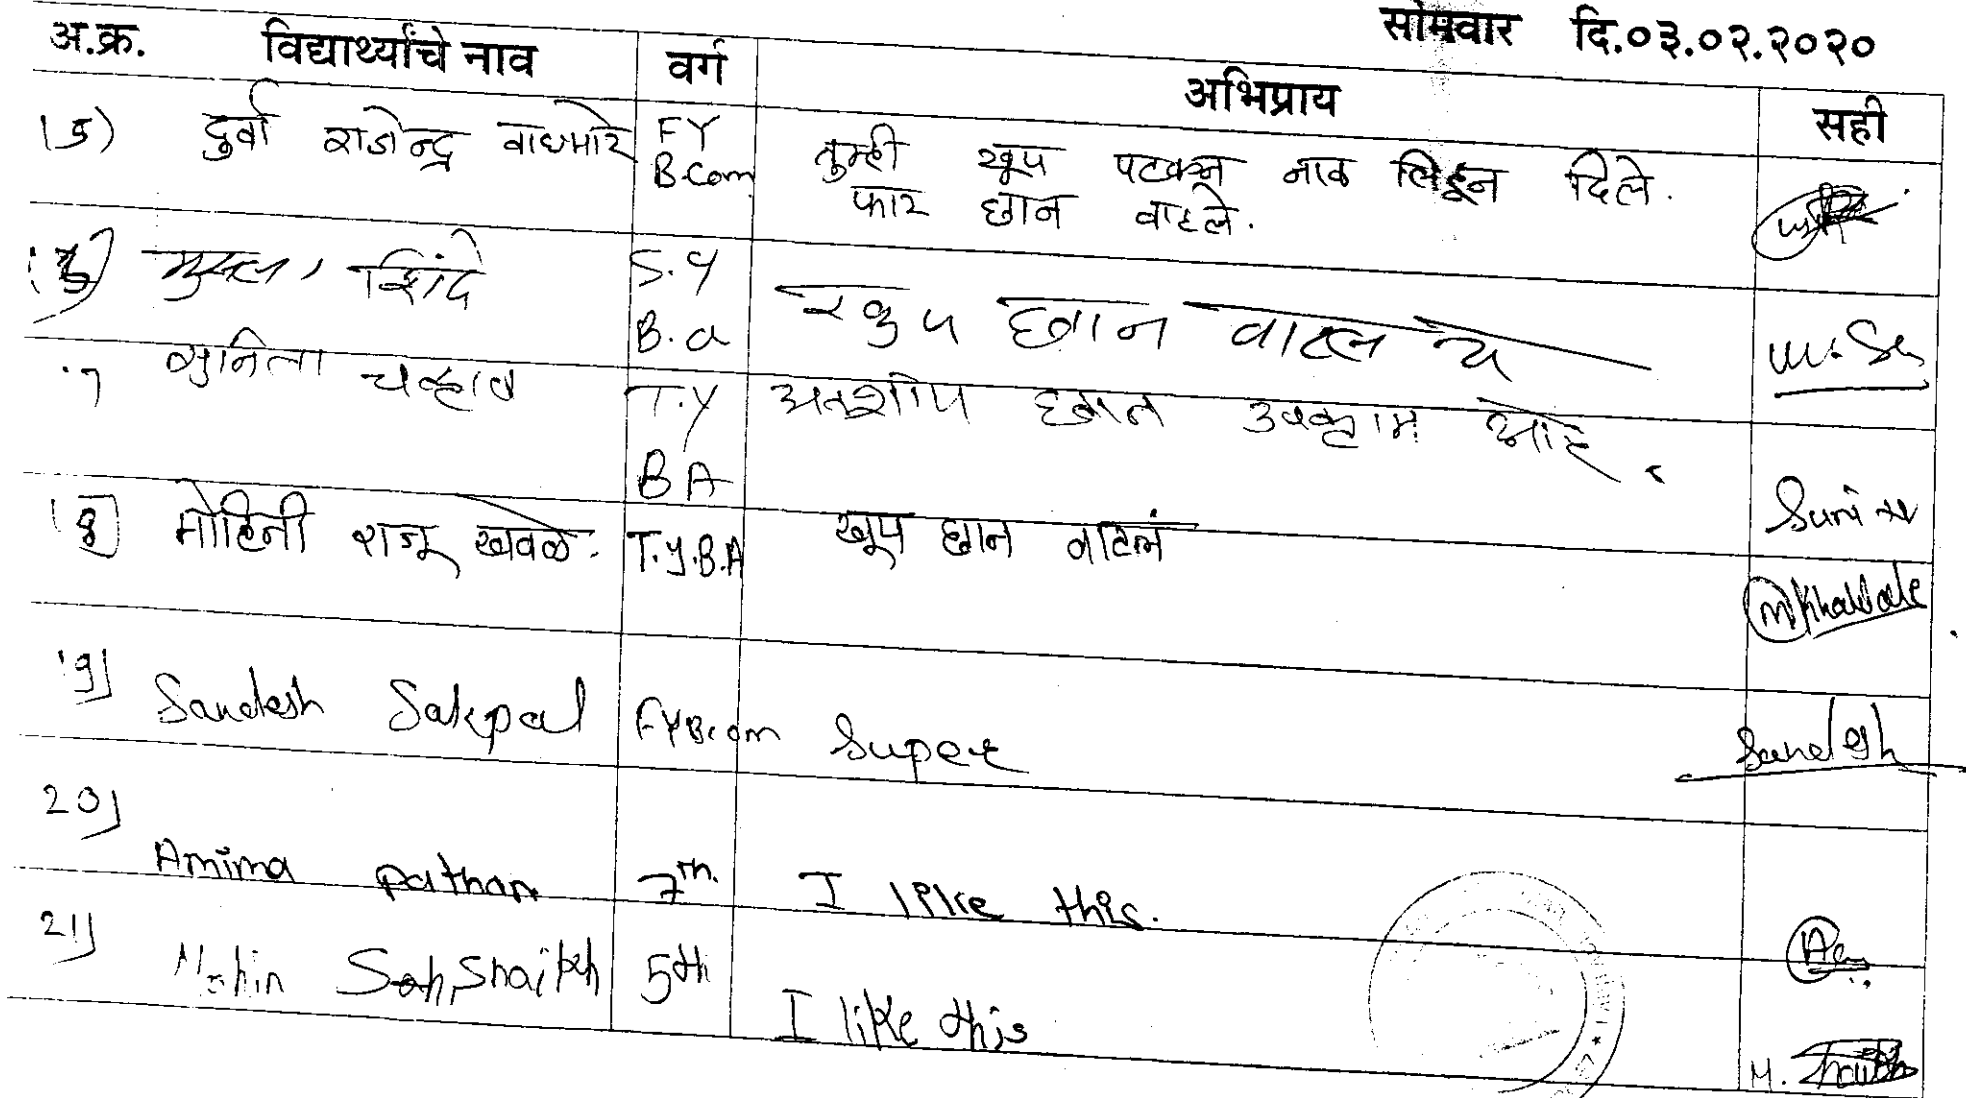 सोमवार दि.०३.०२.२०२०
अ.क्र. विद्यार्थ्यांचे नाव वर्ग अभिप्राय सही
15) दुर्वा राजेन्द्र वाघमारे FY तुम्ही खूप पटकन नाव लिहून दिले.
B.com फार छान वाटले.
शिंदे S.y खुप छान
B.a
सुनिता चव्हाण T.Y छान आहे.
BA Sunita
18] मोहिनी राजू खवळे. T.Y.B.A खूप छान वाटलं
MKhawale
19] Sandesh Sakpal FYBcom Super Sandesh
20]
Amima Pathan 7th. I like this.
21] Shaikh 5th
I like this
M. Shaikh